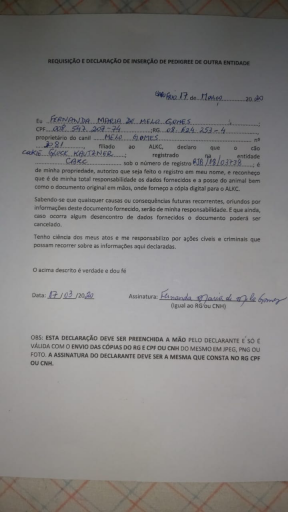 REQUISIÇÃO E DECLARAÇÃO DE INSERÇÃO DE PEDIGREE DE OUTRA ENTIDADE
17 de Março 2020
Eu FERNANDA MARIA DE MELO GOMES
CPF
proprietário do canil MELO GOMES nº
2081 filiado ao AUKC, declaro que o cão
registrado na entidade
sob o número de registro é
de minha propriedade, autorizo que seja feito o registro em meu nome, e reconheço
que é de minha total responsabilidade os dados fornecidos e a posse do animal bem
como o documento original em mãos, onde forneço a cópia digital para o AUKC.
Sabendo-se que quaisquer causas ou consequências futuras recorrentes, oriundos por
informações deste documento fornecido, serão de minha responsabilidade. E que ainda,
caso ocorra algum desencontro de dados fornecidos o documento poderá ser
cancelado.
Tenho ciência dos meus atos e me responsabilizo por ações civeis e criminais que
possam recorrer sobre as informações aqui declaradas.
O acima descrito é verdade e dou fé
Data: 17/03/2020 Assinatura: Fernanda Maria de Melo Gomes
(Igual ao RG ou CNH)
OBS: ESTA DECLARAÇÃO DEVE SER PREENCHIDA A MÃO PELO DECLARANTE E SÓ É
VÁLIDA COM O ENVIO DAS CÓPIAS DO RG E CPF OU CNH DO MESMO EM JPEG, PNG OU
FOTO. A ASSINATURA DO DECLARANTE DEVE SER A MESMA QUE CONSTA NO RG CPF
OU CNH.